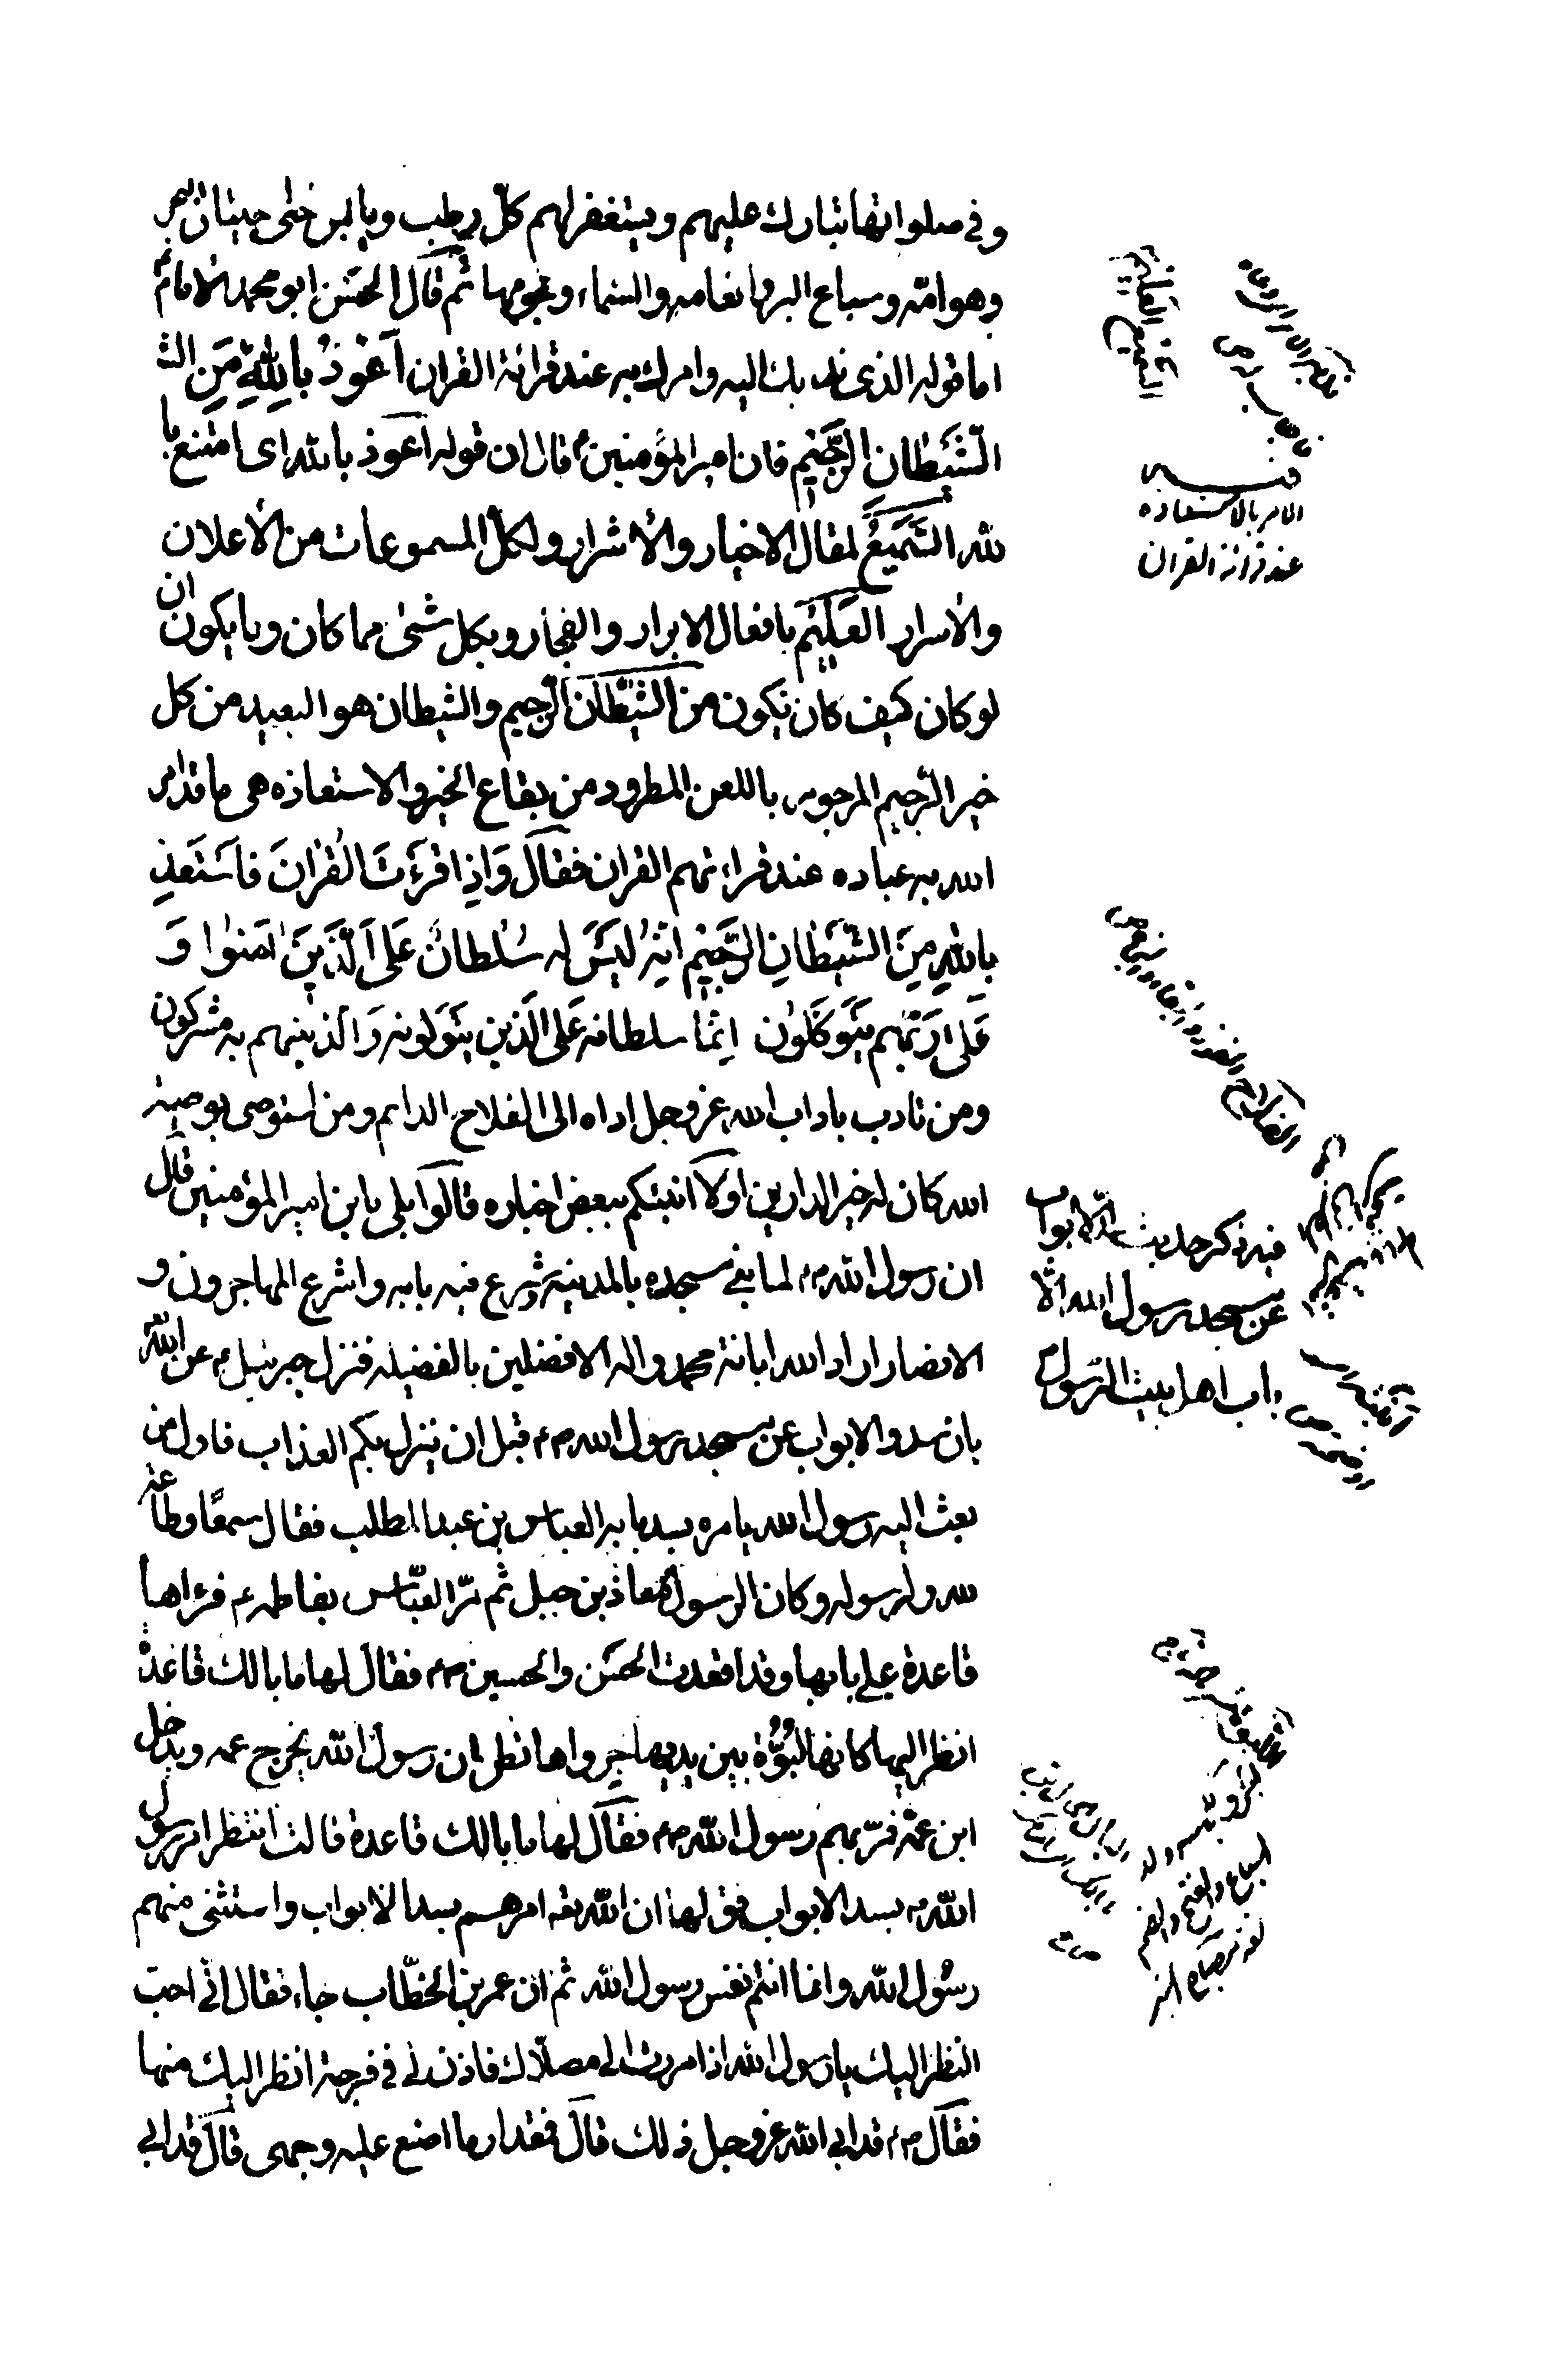 وفي صلواتها تبارك عليهم ويستغفر لهم كل رطب ويابس حتى حيتان البحر
وهوامه وسباع البر وانعامه والسماء ونجومها ثم قال الحسن ابو محمد الامام ع
اما قوله الذى ندبك اليه وامرك به عند قرائة القران اَعُوذُ بِاللهِ مِنَ الش
الشَّيْطانِ الرَّجيمِ فان امير المؤمنين ع قال ان قوله اعوذ بالله اى امتنع با
لله السَّميعُ لمقال الاخيار والأشرار ولكل المسموعات من الأعلان
والأسرار العَليمِ بافعال الابرار والفجار وبكل شئ مما كان وما يكون ان
لو كان كيف كان يكون من الشيطان الرجيم والشيطان هو البعيد من كل
خير الرجيم المرجوم باللعن المطرود من بقاع الخير والاستعاذه هى ما قد امر
الله به عباده عند قراءتهم القران فقال وَاِذا قَرَءْتَ القُرانَ فَاسْتَعِذْ
بِاللهِ مِنَ الشَّيْطانِ الرَّجيمِ اِنَّهُ لَيْسَ لَه سُلْطانٌ عَلَى الَّذينَ امَنوُا وَ
عَلى رَبِّهِم يَتَوَكَّلوُن اِنَّما سلطانه عَلَى الَّذين يَتَوَلونه وَالَّذينهم به مشركون
ومن تادب باداب الله عز وجل اداه الى الفلاح الدائم ومن استوصى بوصية
الله كان له خير الدارين اولا انبئكم ببعض اخباره قالوا بلى يابن امير المؤمنين قال
ان رسول الله ص لما بنى مسجده بالمدينة وشرع فيه بابه واشرع المهاجرون و
الانصار اراد الله ابانة محمد واله الافضلين بالفضيله فنزل جبرئيل ع عن الله
بان سدو الابواب عن مسجد رسول الله ص قبل ان ينزل بكم العذاب فاول من
بعث اليه رسول الله يامره بسد بابه العباس بن عبد المطلب فقال سمعًا وطاعة
لله ولرسوله وكان الرسول معاذ بن جبل ثم مرّ العبّاس بفاطمه ع فرءاها
قاعدة على بابها وقد اقعدت الحسن والحسين ع فقال لها ما بالك قاعدة
انظر اليها كانها لبُوُّة بين يديها جرواها تظن ان رسول الله يخرج عمه ويدخل
ابن عمّه فمرّ بهم رسول الله ص فقال لها ما بالك قاعدة قالت انتظر امر رسول
الله ص بسد الابواب فق لها ان الله تعه امرهم بسد الابواب واستثنى منهم
رسُول الله وانما انتم نفس رسول الله ثم ان عمر بن الخطّاب جاء فقال انى احب
النظر اليك يا رسول الله اذا مررت الى مصلاّك فاذن لى فى فرجة انظر اليك منها
فقال ص قد ابى الله عز وجل ذلك قال فمقدار ما اضع عليه وجهى قال قد ابى
الامر بالاستعاذه
عند قرائة القران
فيه ذكر حديث سد الابواب
عن مسجد رسول الله الّا
باب اهل بيت الرسول